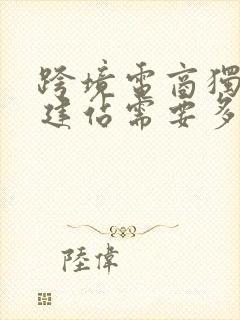 跨境電商獨
建站需要多
陸偉